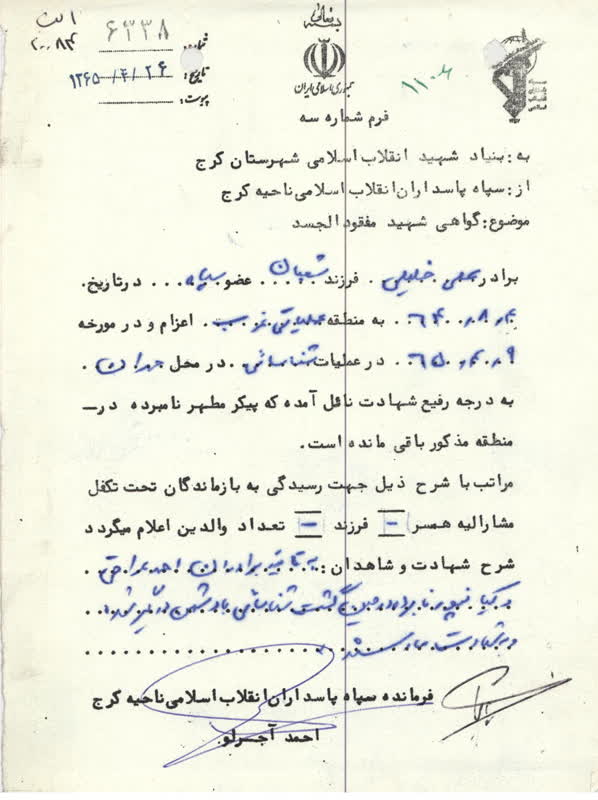 بسمه تعالی
الف
۶۳۳۸
شماره:
۲۰۰۸۴
تاریخ: ۱۳۶۵/۴/۲۶
پیوست:
جمهوری اسلامی ایران
۱۱۰۶
سپاه پاسداران انقلاب اسلامی
فرم شماره سه
به: بنیاد شهید انقلاب اسلامی شهرستان کرج
از: سپاه پاسداران انقلاب اسلامی ناحیه کرج
موضوع: گواهی شهید مفقود الجسد
برادر خلیلی . فرزند شعبان ... عضو سپاه ... در تاریخ.
به منطقه عملیاتی غرب . اعزام و در مورخه
در عملیات شناسائی . در محل مهران .
به درجه رفیع شهادت نائل آمده که پیکر مطهر نامبرده در-
منطقه مذکور باقی مانده است.
مراتب با شرح ذیل جهت رسیدگی به بازماندگان تحت تکفل
مشارالیه همسر - فرزند - تعداد والدین اعلام میگردد
شرح شهادت و شاهدان: به تائید برادران احمد عراقی .
فرمانده سپاه پاسداران انقلاب اسلامی ناحیه کرج
احمد آجرلو